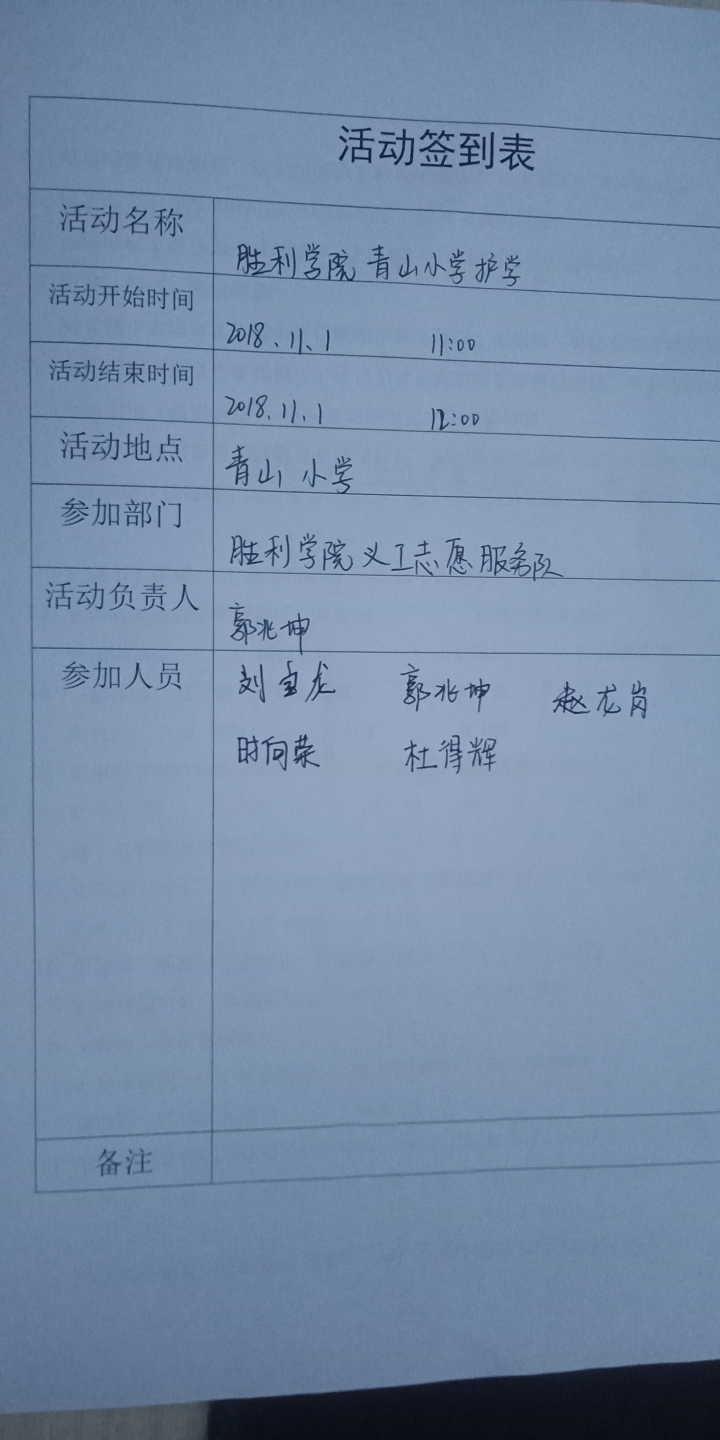 活动签到表
活动名称 胜利学院 青山小学护学
活动开始时间 2018.11.1 11:00
活动结束时间 2018.11.1 12:00
活动地点 青山 小学
参加部门 胜利学院义工志愿服务队
活动负责人 郭兆坤
参加人员 刘宝龙 郭兆坤 赵龙岗
时向荣 杜得辉
备注